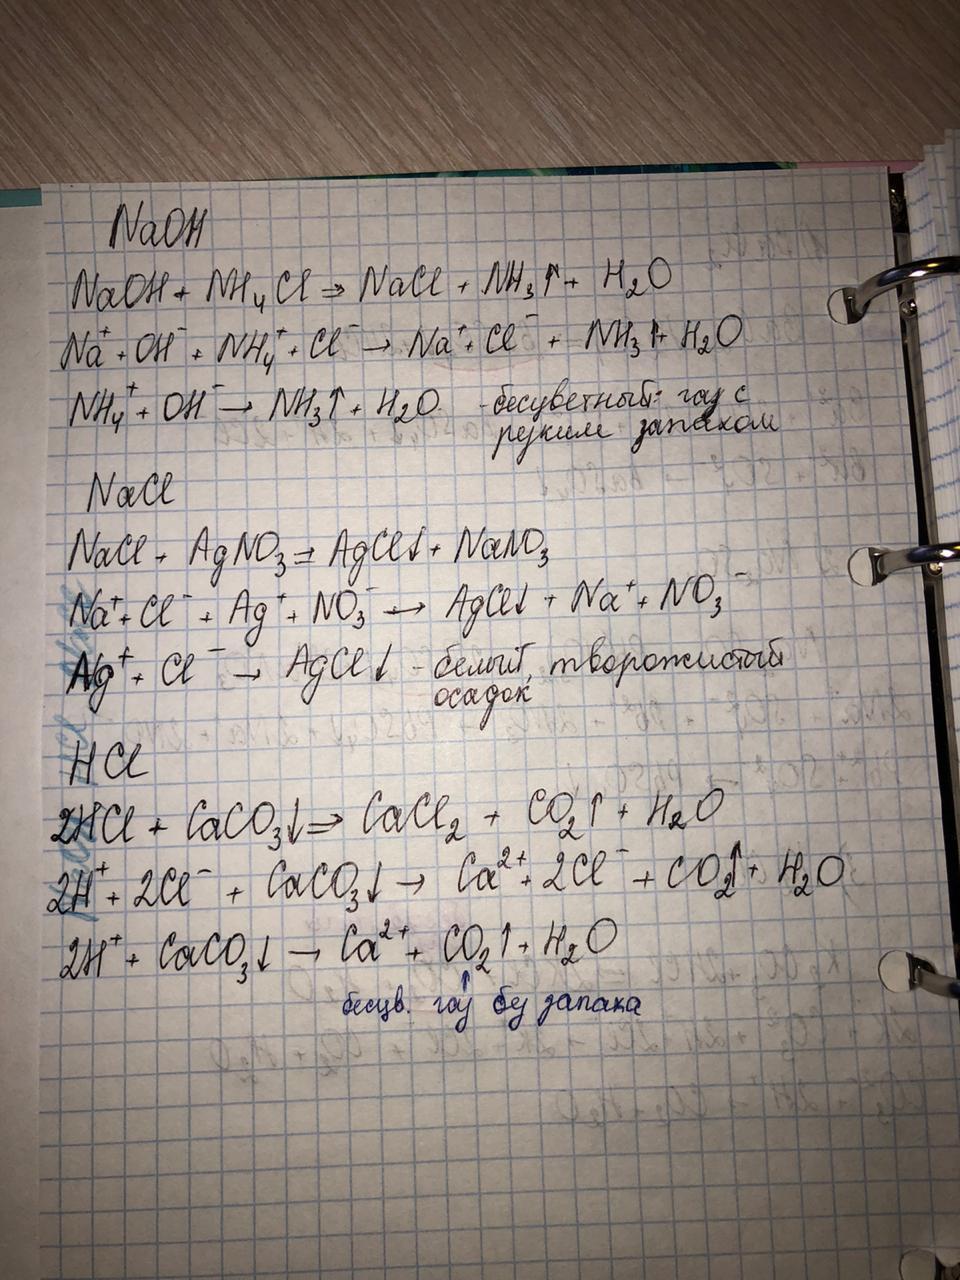 NaOH
NaOH + NH₄Cl ⇒ NaCl + NH₃↑ + H₂O
Na⁺ + OH⁻ + NH₄⁺ + Cl⁻ → Na⁺ + Cl⁻ + NH₃↑ + H₂O
NH₄⁺ + OH⁻ → NH₃↑ + H₂O - бесцветный газ с
резким запахом
NaCl
NaCl + AgNO₃ = AgCl↓ + NaNO₃
Na⁺ + Cl⁻ + Ag⁺ + NO₃⁻ → AgCl↓ + Na⁺ + NO₃⁻
Ag⁺ + Cl⁻ → AgCl↓ - белый, творожистый
осадок
HCl
2HCl + CaCO₃↓ ⇒ CaCl₂ + CO₂↑ + H₂O
2H⁺ + 2Cl⁻ + CaCO₃↓ → Ca²⁺ + 2Cl⁻ + CO₂↑ + H₂O
2H⁺ + CaCO₃↓ → Ca²⁺ + CO₂↑ + H₂O
бесцв. газ без запаха